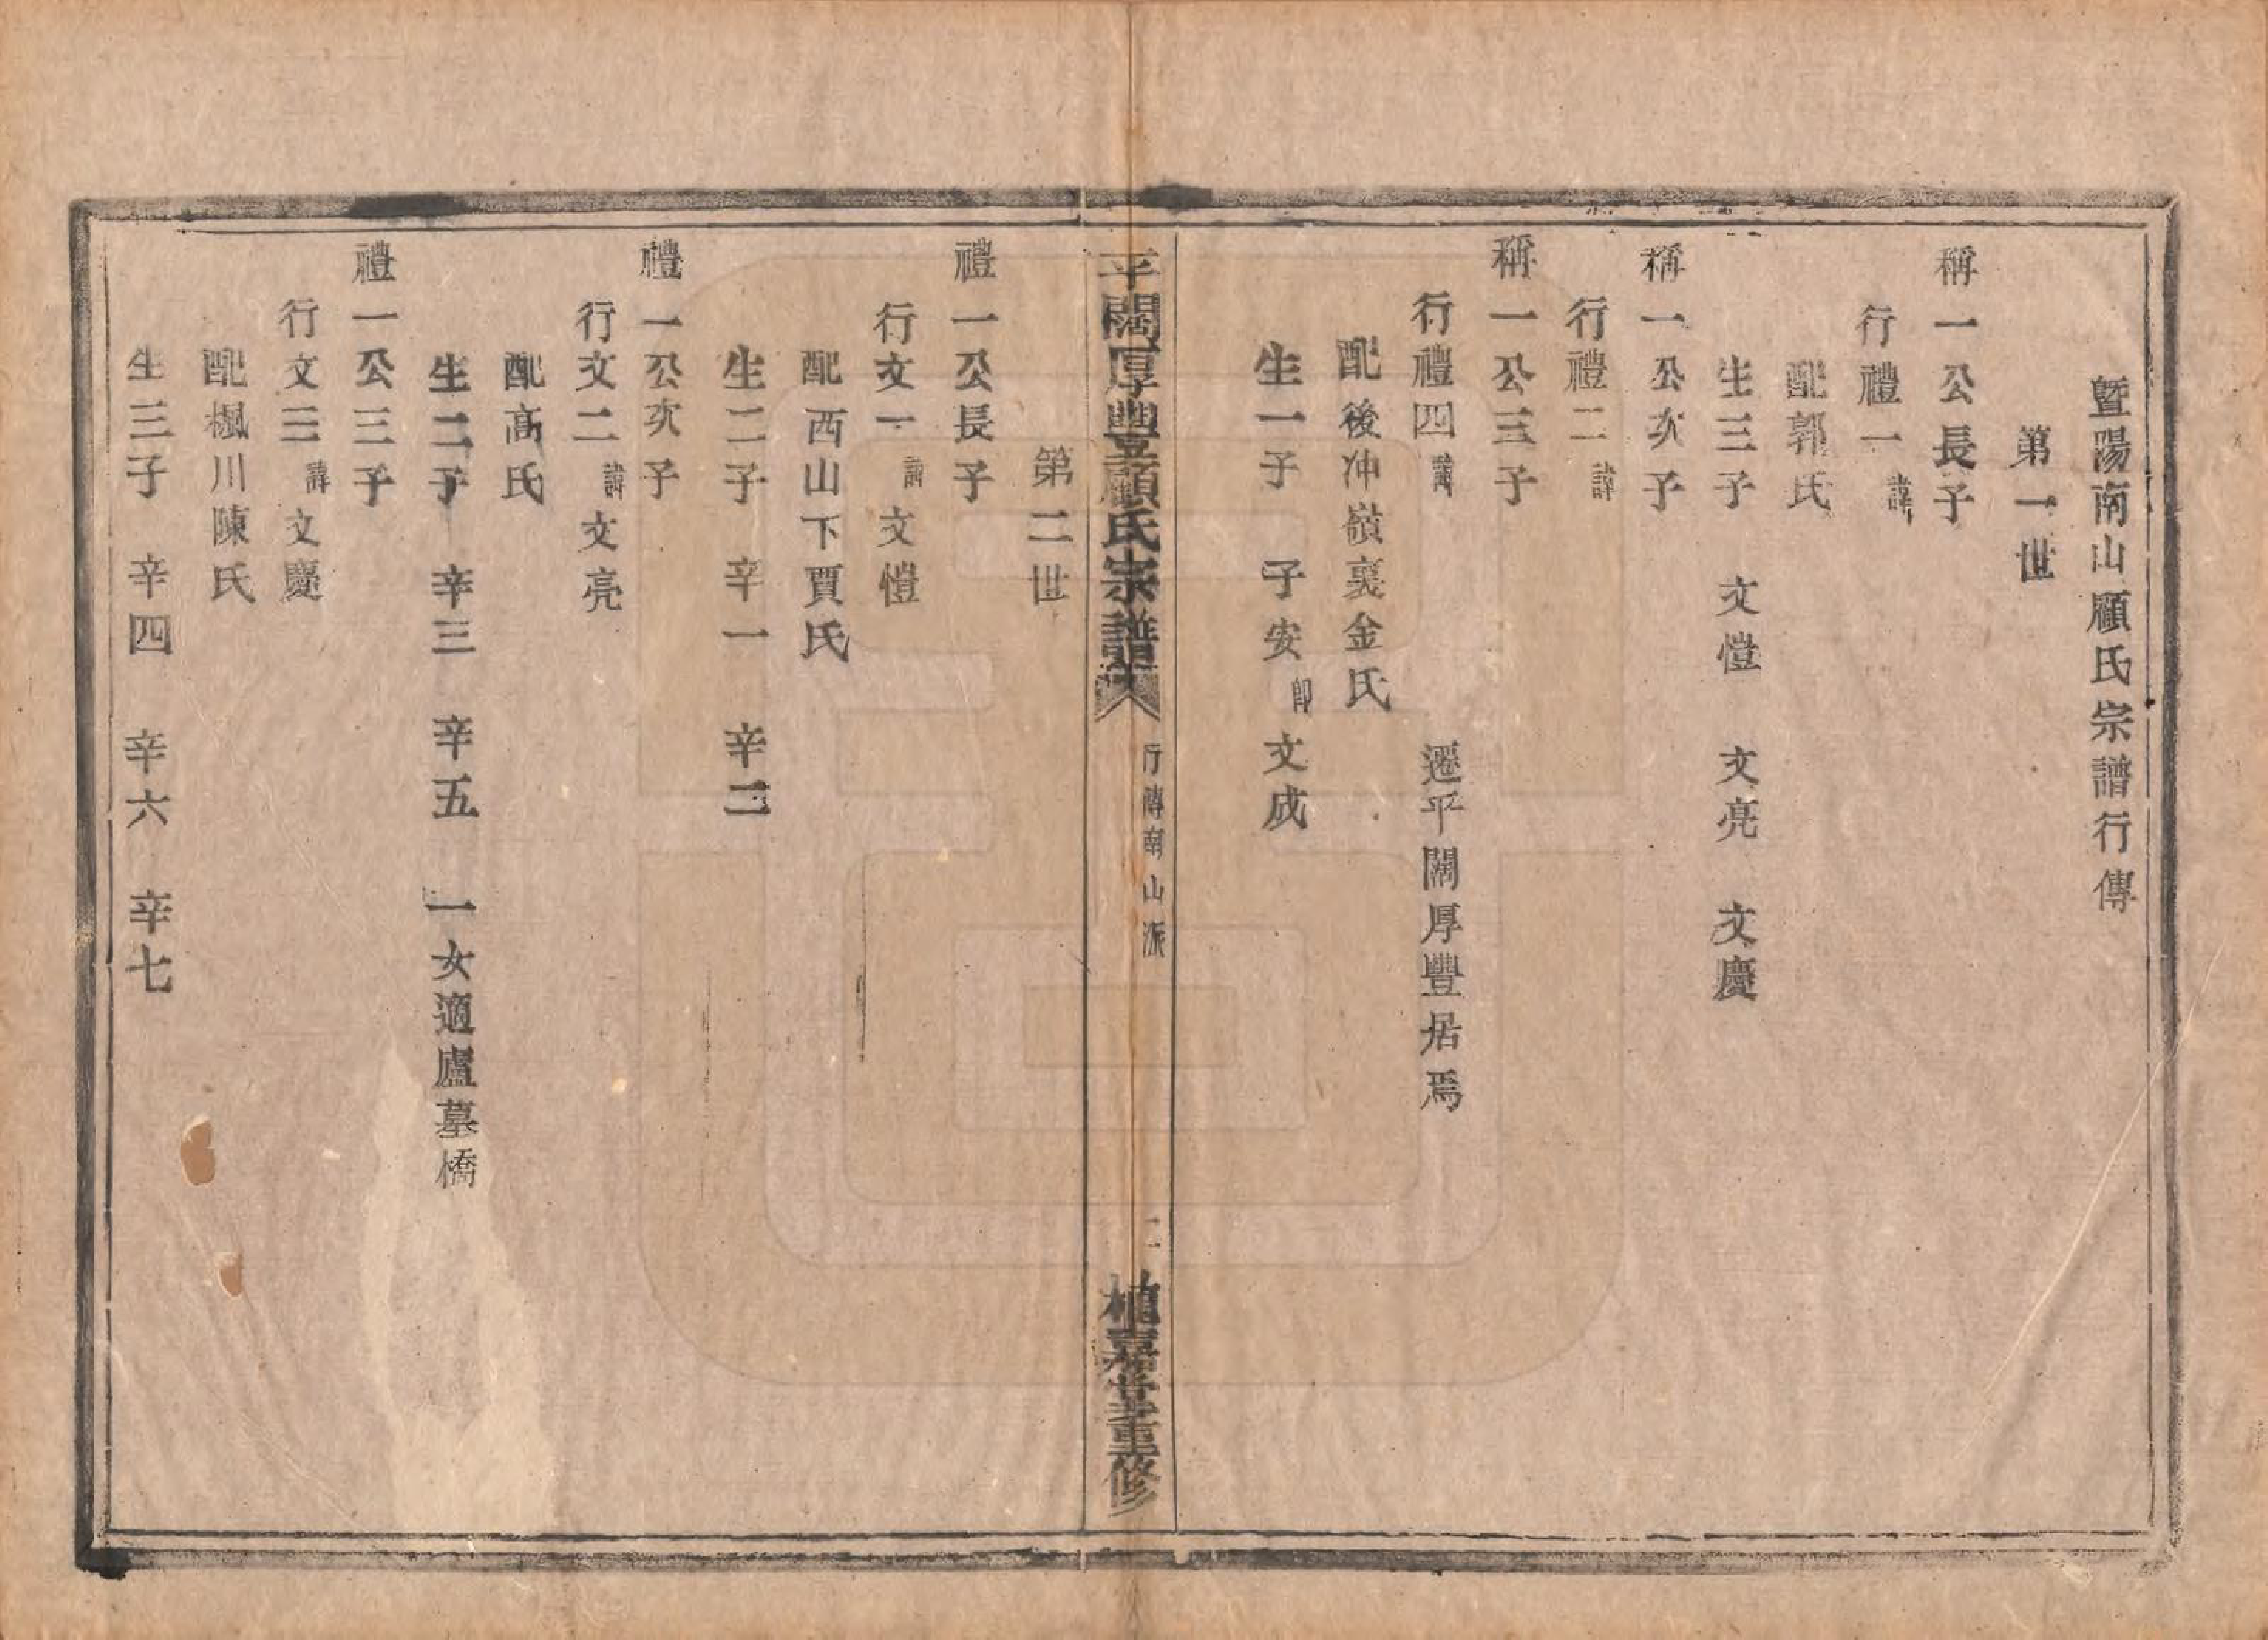 暨陽南山顧氏宗譜行傳
第一世
稱一公長子
行禮一諱
配郭氏
生三子 文愷 文亮 文慶
稱一公次子
行禮二諱
稱一公三子
行禮四諱 遷平闊厚豐居焉
配後冲嶺裏金氏
生一子 子安卽文成
平闊厚豐顧氏宗譜 行傳南山派 二 植嘉堂重修
第二世
禮一公長子
行文一諱文愷
配西山下賈氏
生二子 辛一 辛二
禮一公次子
行文二諱文亮
配高氏
生二子 辛三 辛五 一女適廬墓橋
禮一公三子
行文三諱文慶
配楓川陳氏
生三子 辛四 辛六 辛七